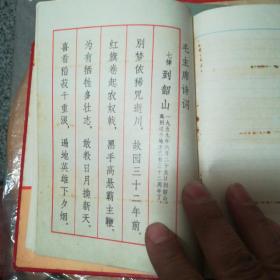 毛主席诗词
七律 到韶山
一九五九年六月二十五日到韶山。
离别这个地方已有三十二周年了。
别梦依稀咒逝川，故园三十二年前。
红旗卷起农奴戟，黑手高悬霸主鞭。
为有牺牲多壮志，敢教日月换新天。
喜看稻菽千重浪，遍地英雄下夕烟。